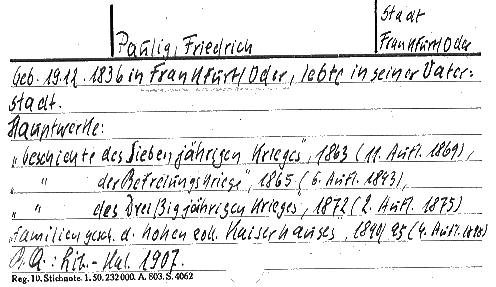 Stadt
Paulig, Friedrich
Frankfurt/Oder
Geb. 19.12. 1836 in Frankfurt/Oder, lebte in seiner Vater-
stadt.
Hauptwerke:
„Geschichte des Siebenjährigen Krieges", 1863 (11. Aufl. 1869),
" der Befreiungskriege", 1865 (6. Aufl. 1893),
" " des Dreißigjährigen Krieges, 1872 (2. Aufl. 1875)
„Familiengesch. d. hohenzoll. Kaiserhauses", 1890/95 (4. Aufl.
Lit.-Kal. 1907.
Reg. 10. Stichnote. 1. 50. 232000. A. 803. S. 4062